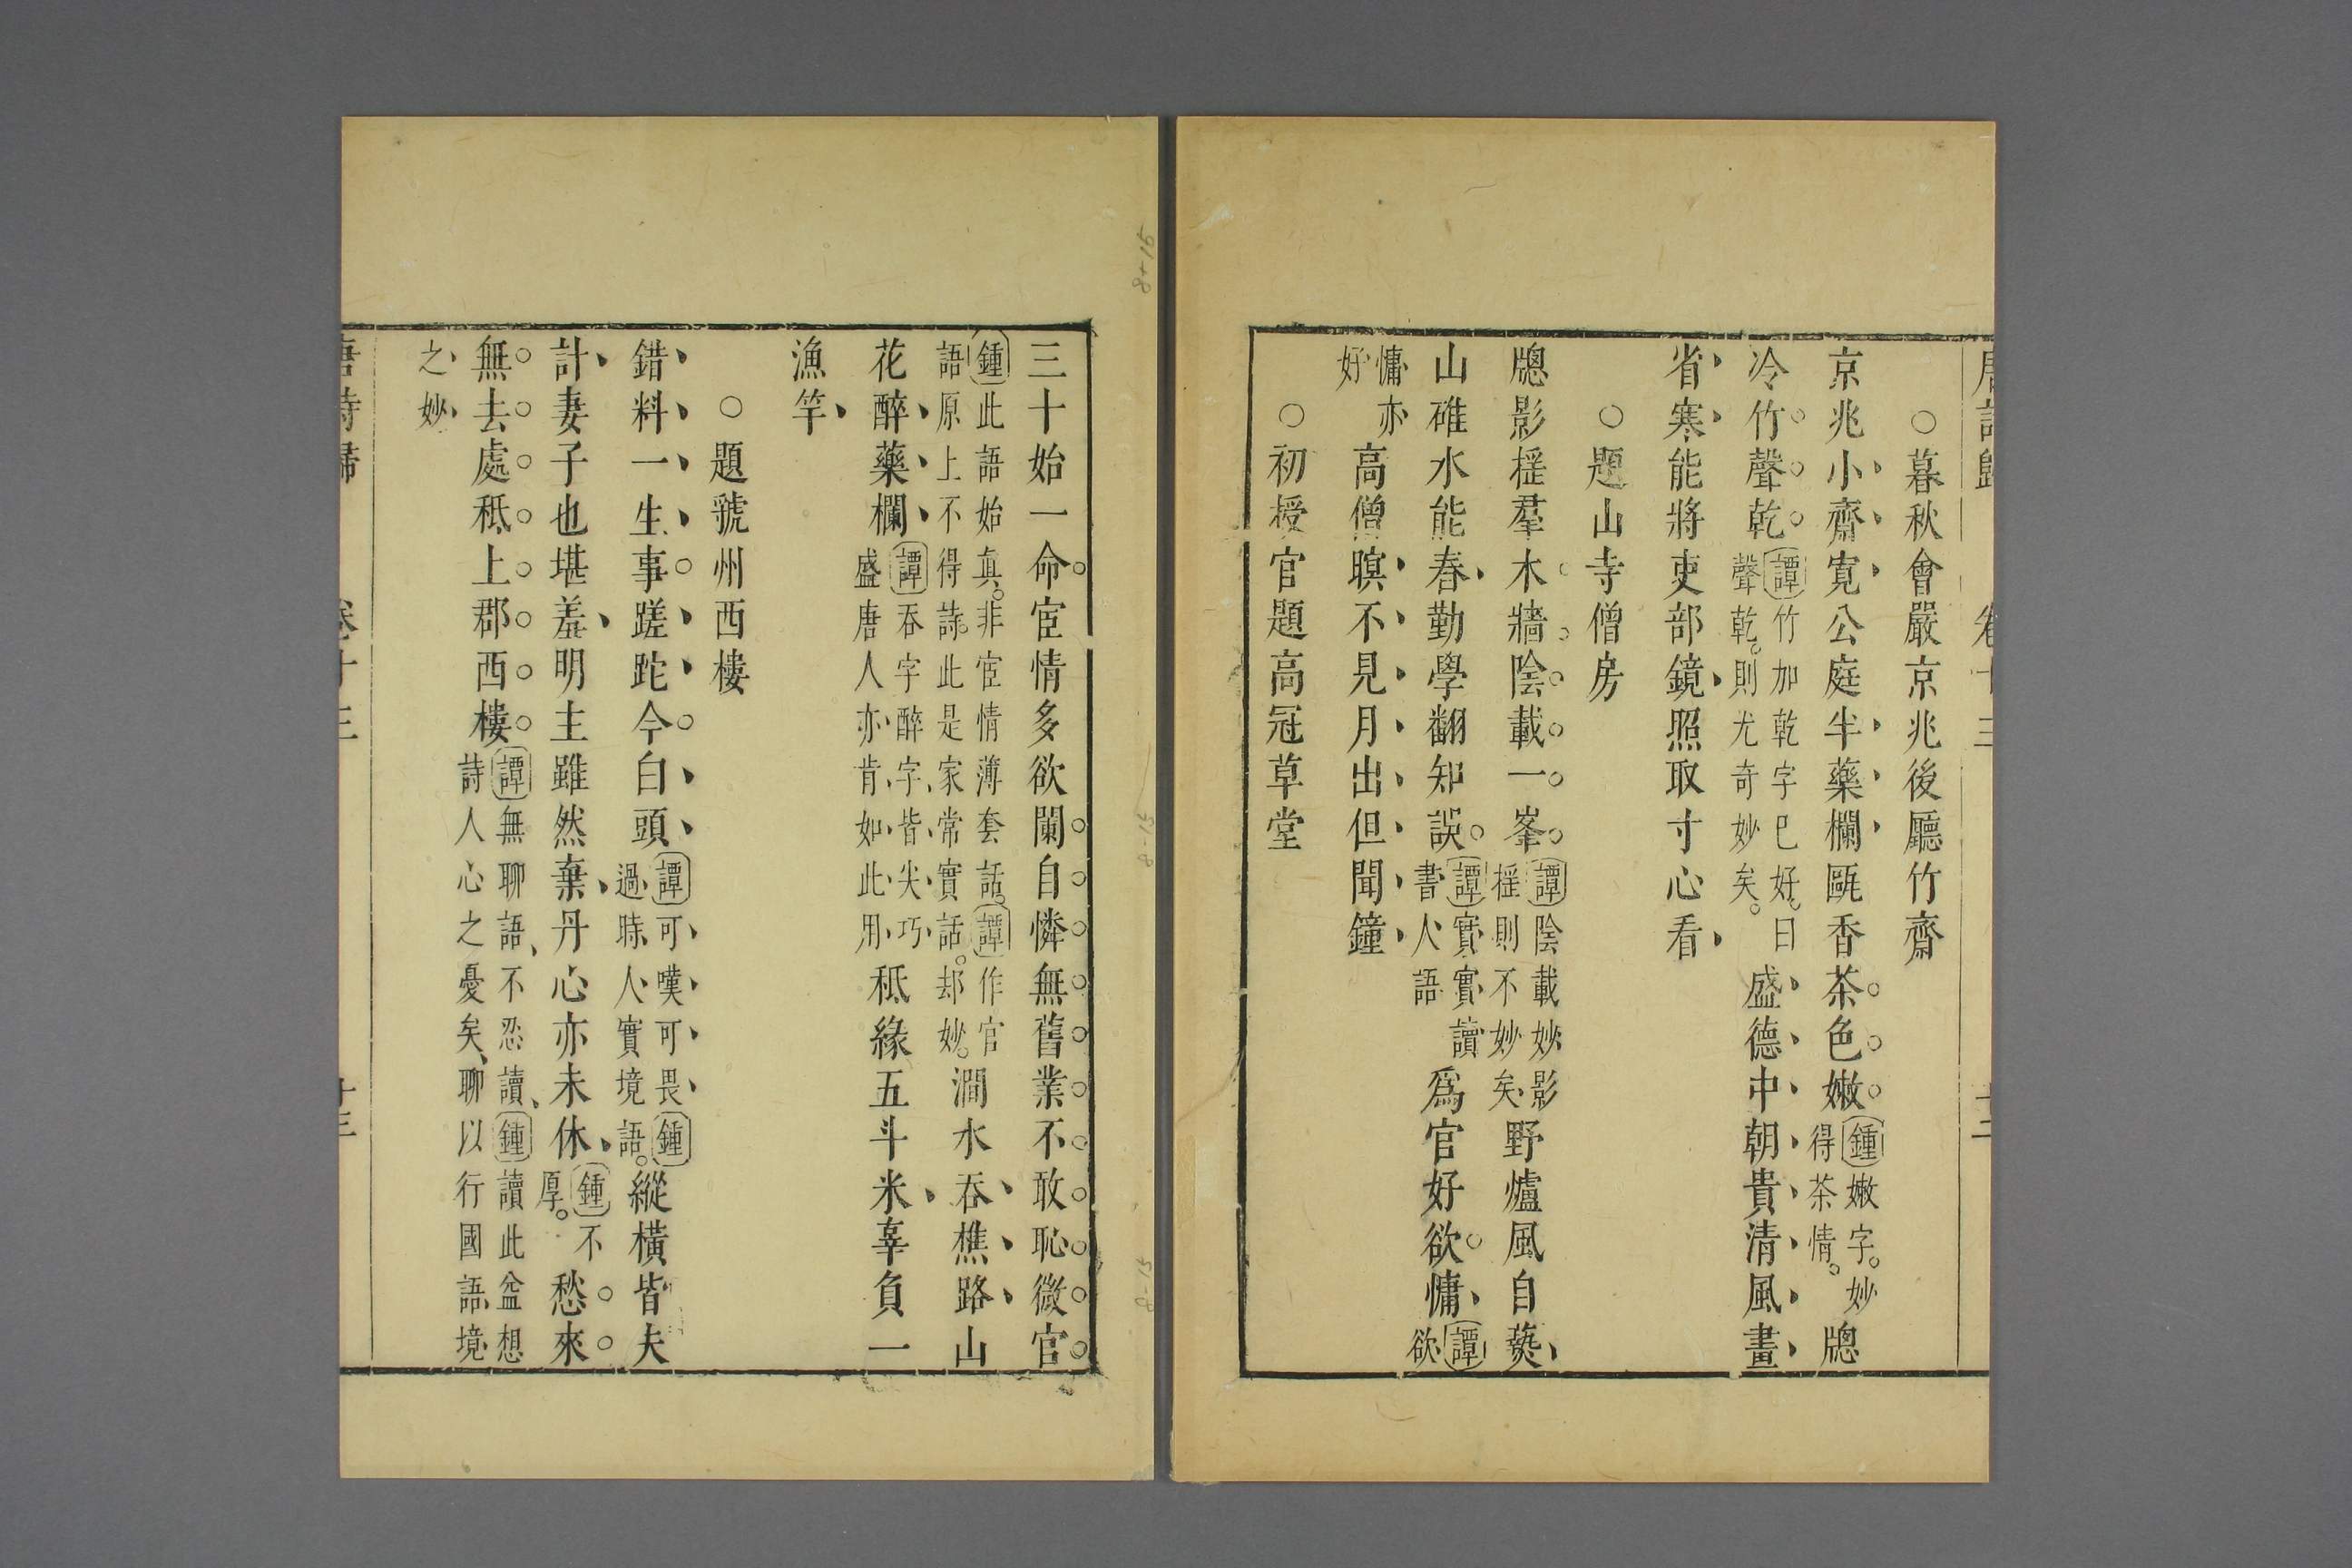 唐詩歸 卷十三 十三
○暮秋會嚴京兆後廳竹齋
京兆小齋寬公庭半藥欄甌香茶色嫩鍾嫩字。妙得茶情。牕
冷竹聲乾譚竹加乾字巳好。曰聲乾。則尤奇妙矣。盛德中朝貴清風畫
省寒能將吏部鏡照取寸心看
○題山寺僧房
牕影摇羣木牆陰載一峯譚陰載妙影摇則不妙矣野爐風自爇
山碓水能春勤學翻知誤譚實實讀書人語爲官好欲慵譚欲
慵亦好高僧暝不見月出但聞鐘
○初授官題高冠草堂
三十始一命宦情多欲闌自憐無舊業不敢恥微官
鍾此語始真。非宦情薄套話。譚作官語原上不得詩。此是家常實話。却妙。澗水吞樵路山
花醉藥欄譚吞字醉字皆尖巧盛唐人亦肯如此用秪緣五斗米辜負一
漁竿
○題虢州西樓
錯料一生事蹉跎今白頭譚可嘆可畏鍾過時人實境語。縱横皆夫
計妻子也堪羞明主雖然棄丹心亦未休鍾不厚。愁來
無去處秪上郡西樓譚無聊語、不忍讀、鍾讀此益想詩人心之憂矣、聊以行國語境
之妙
唐詩歸 卷十三 十三